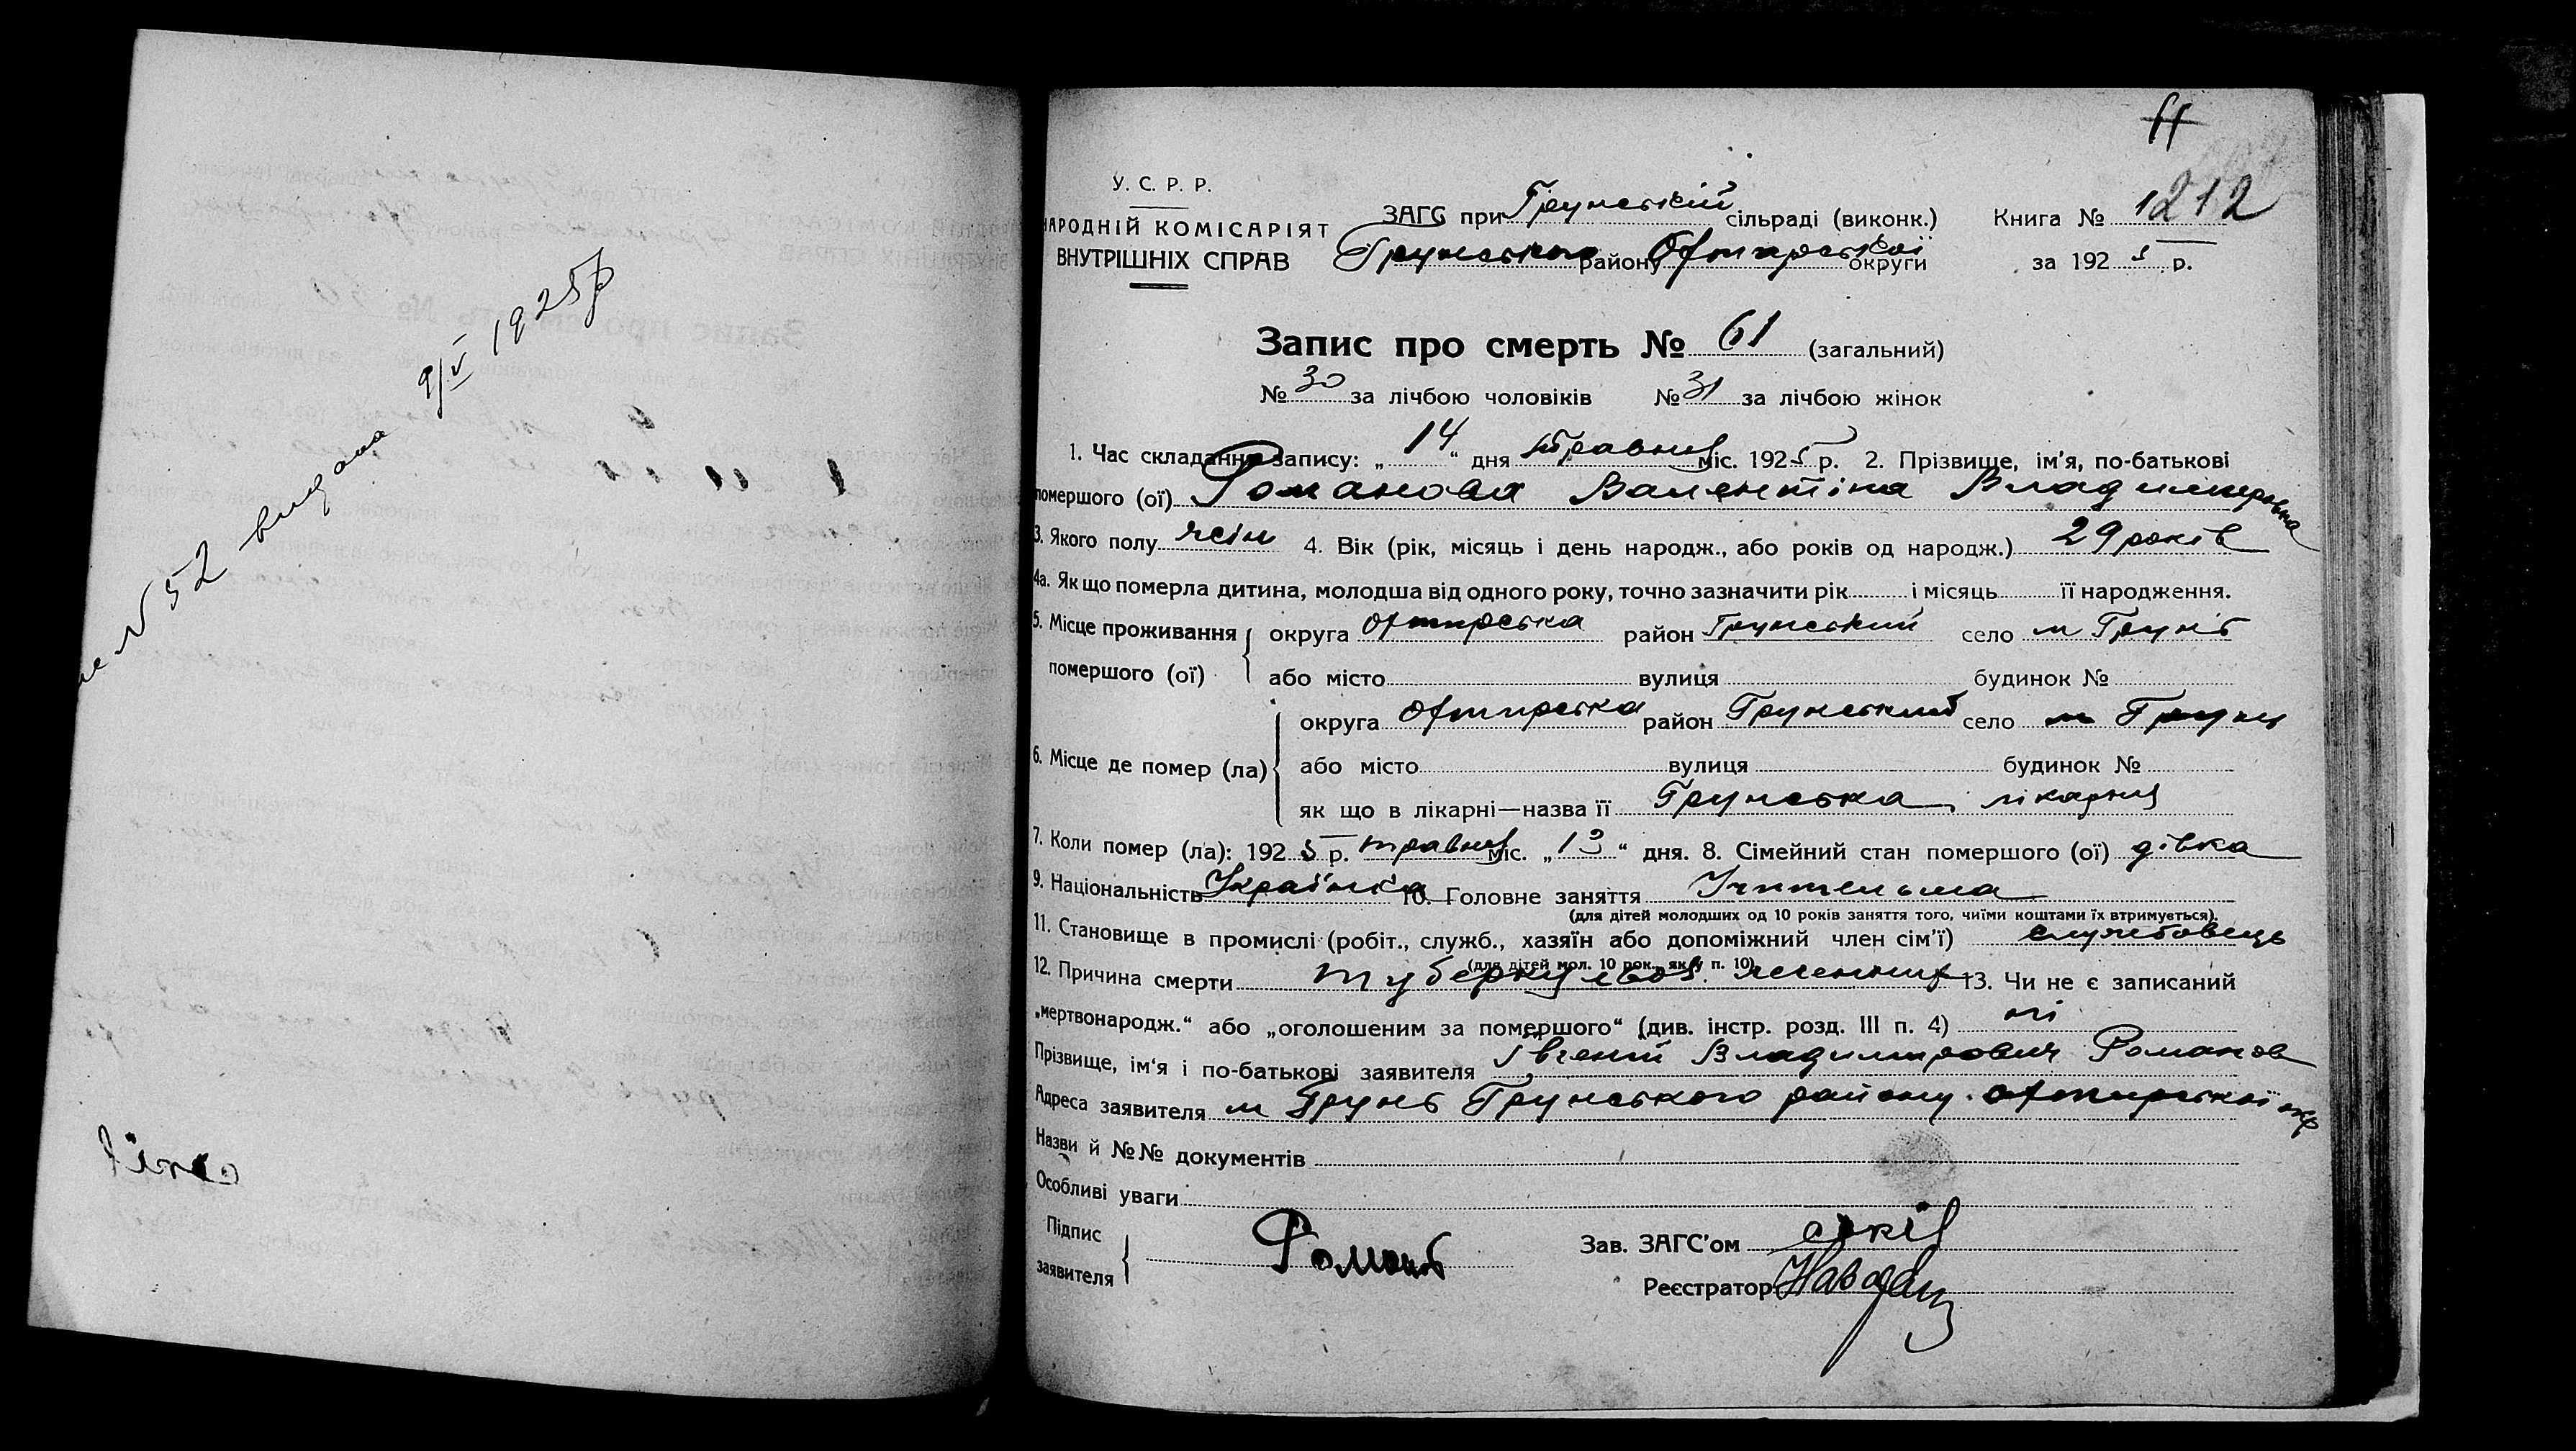 № 52 видана 9/V 1925р
11
У. С. Р. Р.
НАРОДНІЙ КОМІСАРІЯТ
ВНУТРІШНІХ СПРАВ
ЗАГС при Грунській сільраді (виконк.)
Грунського району Охтирської округи
Книга № 1212
за 1925 р.
Запис про смерть № 61 (загальний)
№ 30 за лічбою чоловіків № 31 за лічбою жінок
1. Час складання запису: „ 14 “ дня травня міс. 1925 р. 2. Прізвище, ім'я, по-батькові
помершого (ої) Романова Валентіна Владимировна
3. Якого полу жін 4. Вік (рік, місяць і день народж., або років од народж.) 29 років
4а. Як що померла дитина, молодша від одного року, точно зазначити рік і місяць її народження.
5. Місце проживання помершого (ої) округа Охтирська район Грунський село м Грунь
або місто вулиця будинок №
6. Місце де помер (ла) округа Охтирська район Грунський село м Грунь
або місто вулиця будинок №
як що в лікарні—назва її Грунська лікарня
7. Коли помер (ла): 1925 р. травня міс. „ 13 “ дня. 8. Сімейний стан помершого (ої) дівка
9. Національність Українка 10. Головне заняття Учителька
(для дітей молодших од 10 років заняття того, чиїми коштами їх втримується).
11. Становище в промислі (робіт., служб., хазяїн або допоміжний член сім'ї) службовець
(для дітей мол. 10 рок., як у п. 10)
12. Причина смерти туберкульоз легенних 13. Чи не є записаний
„мертвонародж.“ або „оголошеним за помершого“ (див. інстр. розд. III п. 4) ні
Прізвище, ім'я і по-батькові заявителя Євгеній Владимирович Романов
Адреса заявителя м Грунь Грунського району Охтирської окр
Назви й №№ документів
Особливі уваги
Підпис заявителя Романов
Зав. ЗАГС'ом
Реєстратор